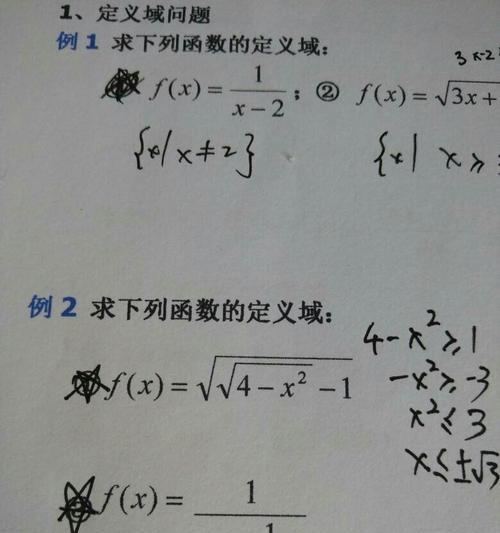 1、定义域问题
例1 求下列函数的定义域:
3x-2
f(x)=1/(x-2); ② f(x)=√3x+
{x/x≠2} {x| x≥
例2 求下列函数的定义域:
f(x)=√(√(4-x²)-1)
4-x²≥1
-x²≥-3
x²≤3
x≤±√3
f(x)=1